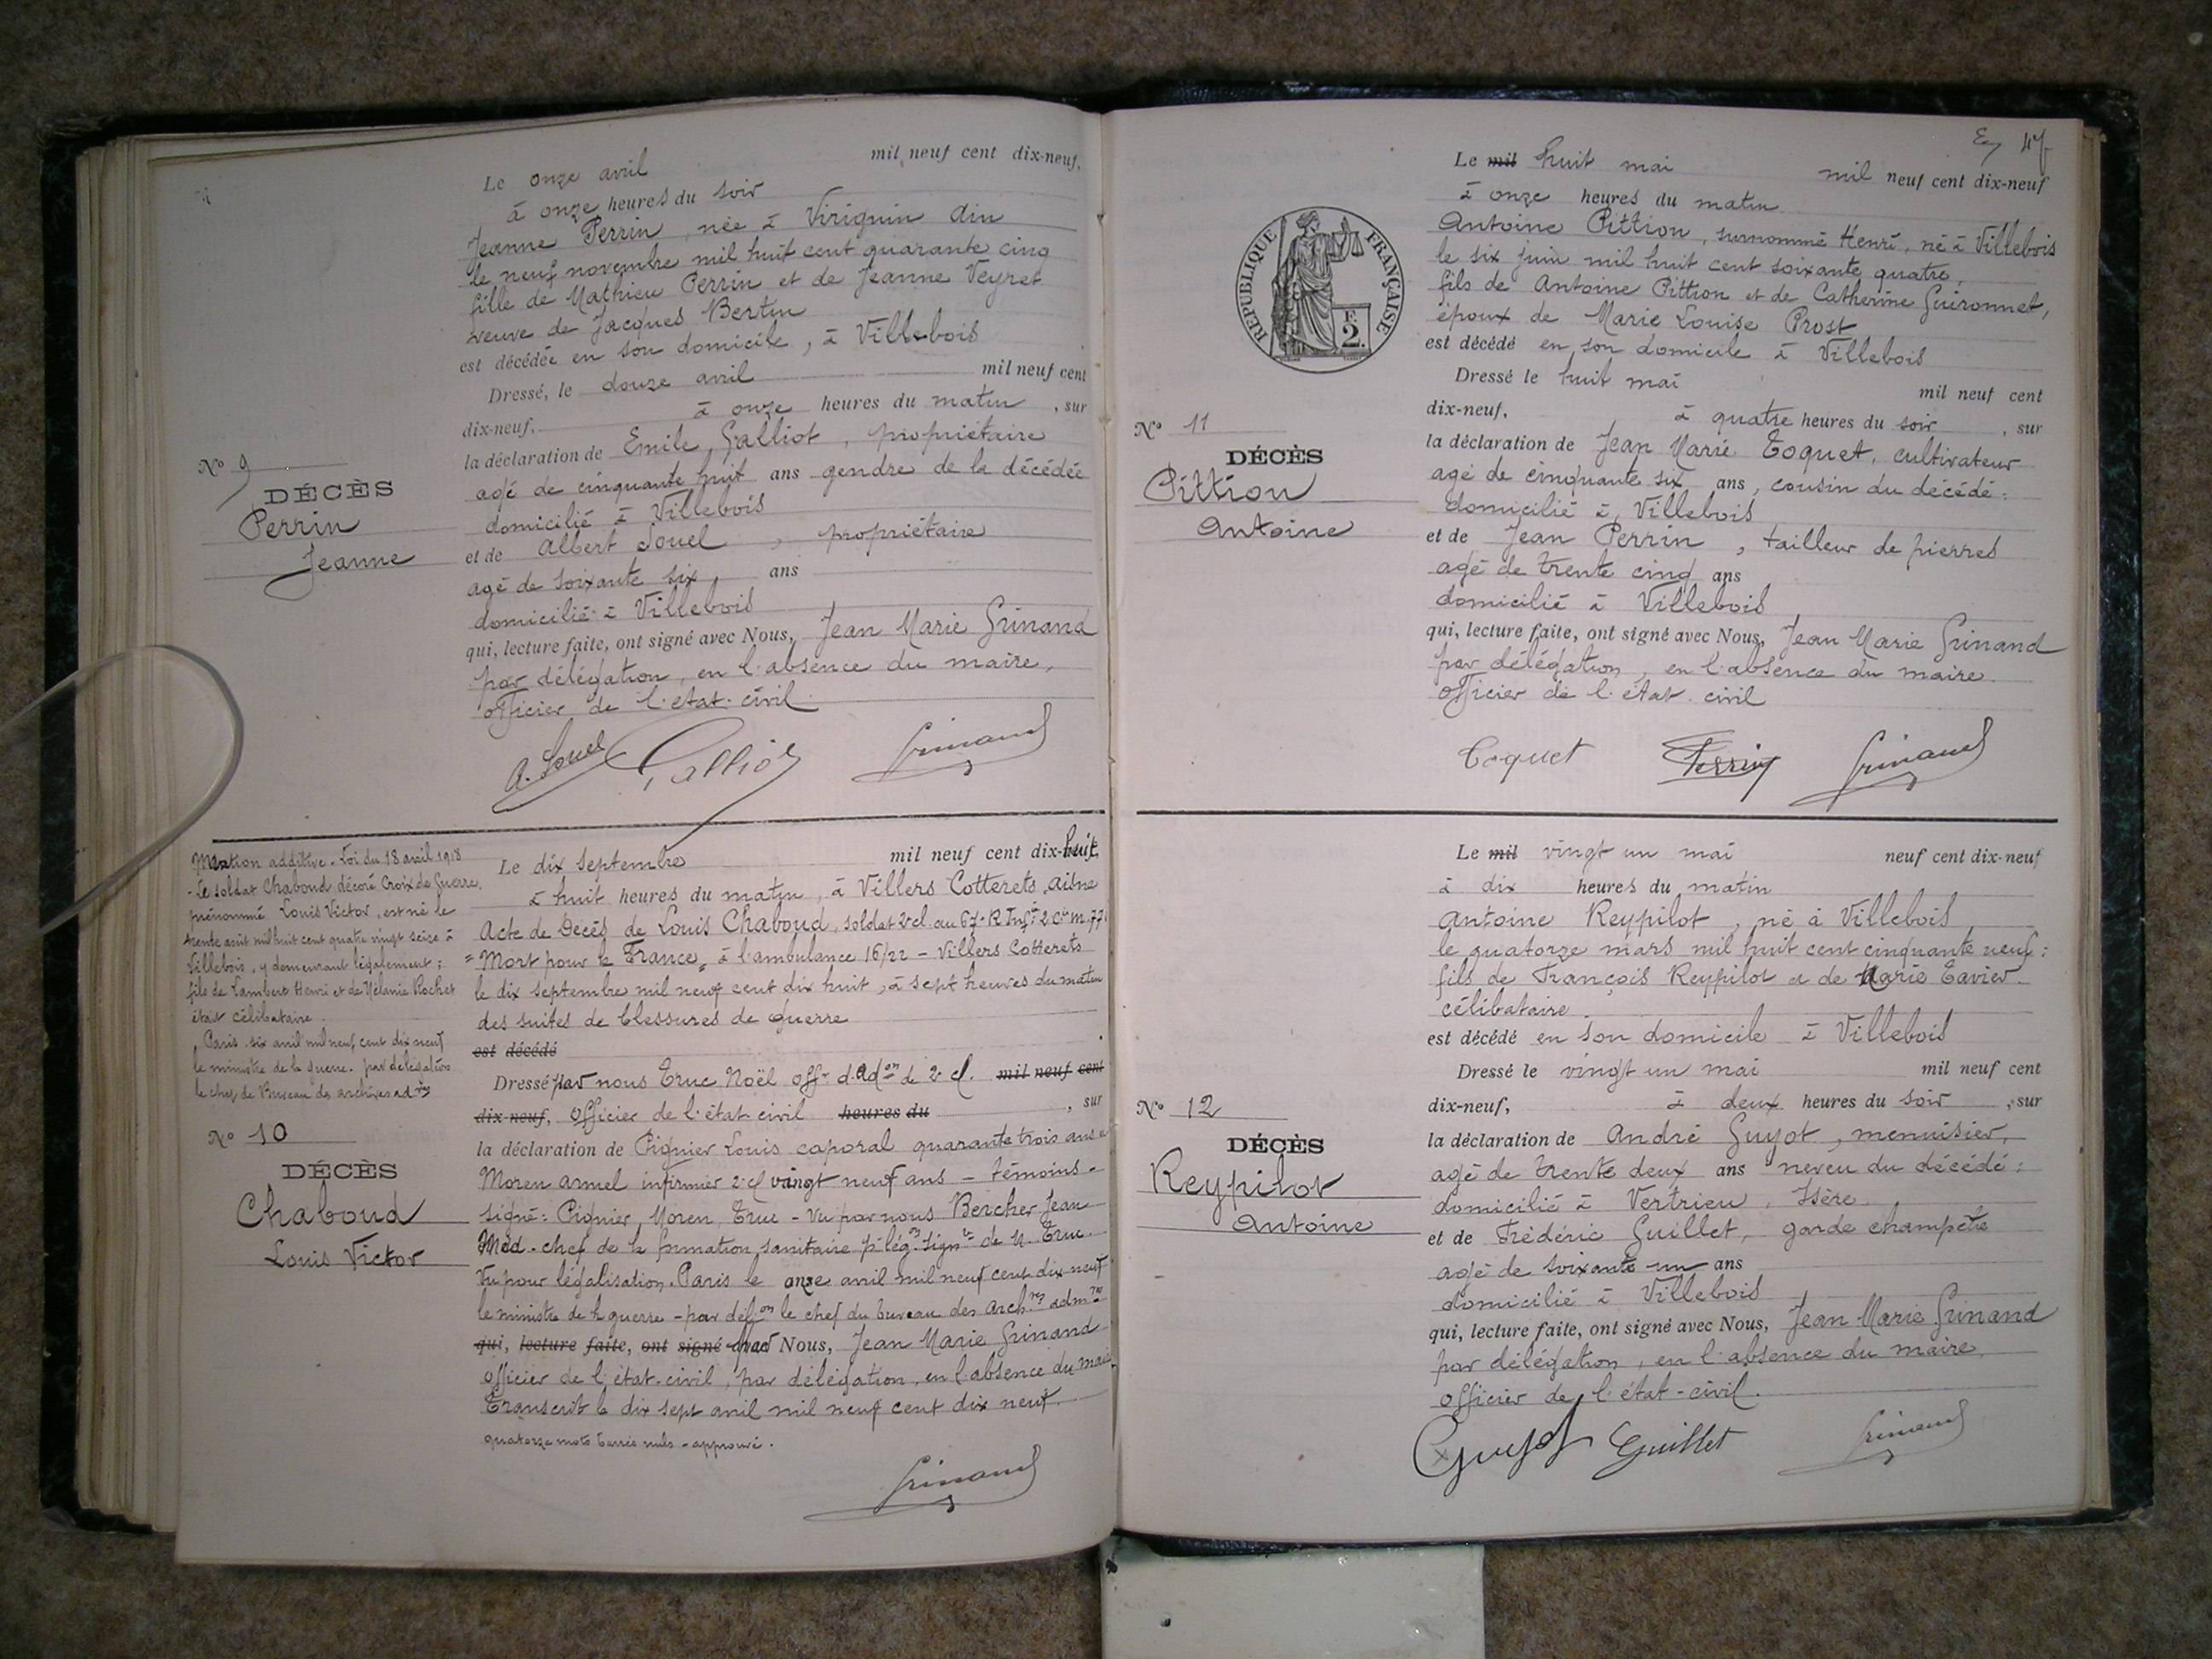 Le onze avril mil neuf cent dix-neuf,
à onze heures du soir
Jeanne Perrin, née à Virignin Ain
le neuf novembre mil huit cent quarante cinq
fille de Mathieu Perrin et de Jeanne Veyret
veuve de Jacques Bertin
est décédée en son domicile, à Villebois
Dressé, le douze avril mil neuf cent
dix-neuf, à onze heures du matin, sur
la déclaration de Emile Galliot, propriétaire
agé de cinquante huit ans gendre de la décédée
domicilié à Villebois
et de Albert Jouel, propriétaire
agé de soixante six, ans
domicilié à Villebois
qui, lecture faite, ont signé avec Nous, Jean Marie Grinand
par délégation, en l'absence du maire,
officier de l'etat-civil
A. Jouel Galliot Grinand
N° 9
DÉCÈS
Perrin
Jeanne
Mention additive - Loi du 18 avril 1918
- Le soldat Chaboud décoré Croix de Guerre,
prénommé Louis Victor, est né le
trente août mil huit cent quatre vingt seize à
Villebois, y demeurant légalement ;
fils de Lambert Henri et de Mélanie Rochet
était célibataire.
Paris six avril mil neuf cent dix neuf
le ministre de la guerre. par délégation
le chef de Bureau des archives ad.ves
N° 10
DÉCÈS
Chaboud
Louis Victor
Le dix septembre mil neuf cent dix-huit,
à huit heures du matin, à Villers Cotterets, Aisne
Acte de Décès de Louis Chaboud, soldat 2e cl. au 67e R. Inf.ie 2 Cie m. 771
"Mort pour la France" à l'ambulance 16/22 - Villers Cotterets
le dix septembre mil neuf cent dix huit, à sept heures du matin
des suites de blessures de guerre
est décédé
Dressé par nous Truc Noël off.r d'Ad.on de 2e cl. mil neuf cent
dix-neuf, officier de l'état civil heures du, sur
la déclaration de Pignier Louis caporal quarante trois ans et
Moren Armel infirmier 2e cl vingt neuf ans - témoins -
signé : Pignier, Moren, Truc - Vu par nous Bercher Jean
Méd. chef de la formation sanitaire p. lég.on sign.re de M. Truc.
Vu pour légalisation. Paris le onze avril mil neuf cent dix neuf
le ministre de la guerre - par dél.on le chef du bureau des Arch.ves adm.ves
qui, lecture faite, ont signé avec par Nous, Jean Marie Grinand
officier de l'état-civil, par délégation, en l'absence du maire,
Transcrit le dix sept avril mil neuf cent dix neuf.
quatorze mots barrés nuls - approuvé.
Grinand
47
Le mil huit mai mil neuf cent dix-neuf
à onze heures du matin
Antoine Pittion, surnommé Henri, né à Villebois
le six juin mil huit cent soixante quatre,
fils de Antoine Pittion et de Catherine Guironnet,
époux de Marie Louise Prost
est décédé en son domicile à Villebois
Dressé le huit mai mil neuf cent
dix-neuf, à quatre heures du soir, sur
la déclaration de Jean Marie Toquet, cultivateur
agé de cinquante six ans, cousin du décédé :
domicilié à Villebois
et de Jean Perrin, tailleur de pierres
agé de trente cinq ans
domicilié à Villebois
qui, lecture faite, ont signé avec Nous, Jean Marie Grinand
par délégation, en l'absence du maire.
officier de l'état-civil
Toquet Perrin Grinand
RÉPUBLIQUE FRANÇAISE
F.
2.
N° 11
DÉCÈS
Pittion
Antoine
Le mil vingt un mai neuf cent dix-neuf
à dix heures du matin
Antoine Reypilot, né à Villebois
le quatorze mars mil huit cent cinquante neuf :
fils de François Reypilot et de Marie Tavier.
célibataire
est décédé en son domicile à Villebois
Dressé le vingt un mai mil neuf cent
dix-neuf, à deux heures du soir, sur
la déclaration de André Guyot, menuisier,
agé de trente deux ans neveu du décédé :
domicilié à Vertrieu, Isère
et de Frédéric Guillet, garde champêtre
agé de soixante un ans
domicilié à Villebois
qui, lecture faite, ont signé avec Nous, Jean Marie Grinand
par délégation, en l'absence du maire,
officier de l'état-civil.
Guyot Guillet Grinand
N° 12
DÉCÈS
Reypilot
Antoine